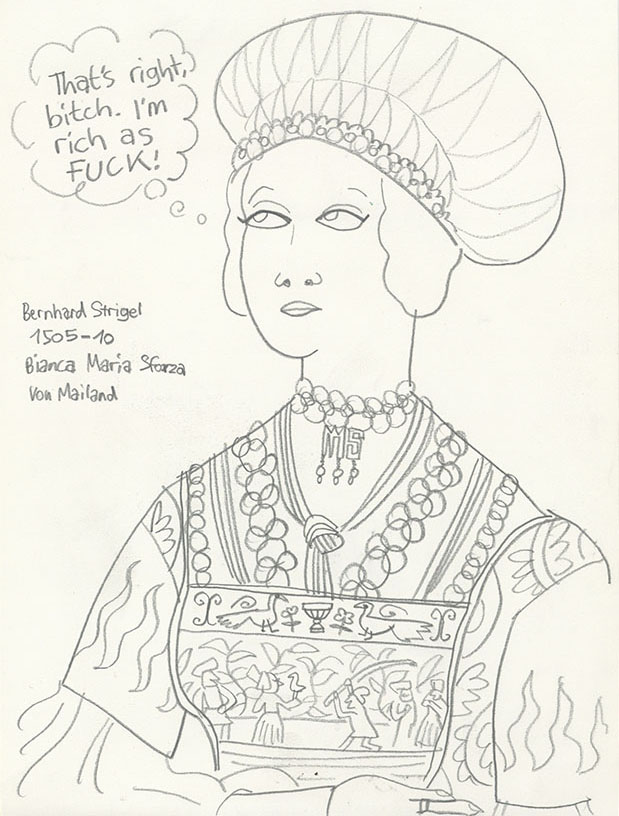 That's right,
bitch. I'm
rich as
FUCK!
Bernhard Strigel
1505-10
Bianca Maria Sforza
Von Mailand
MS